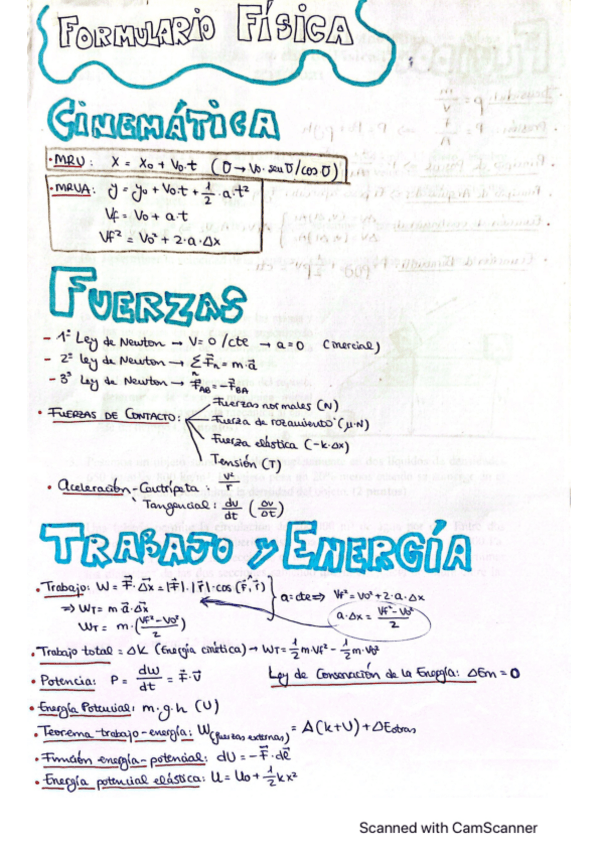 FORMULARIO FÍSICA
CINEMÁTICA
• MRU: X = X₀ + V₀·t (v̄ → V₀·sen v̄/cos v̄)
• MRUA: y = y₀ + V₀·t + 1/2·a·t²
Vf = V₀ + a·t
Vf² = V₀² + 2·a·Δx
FUERZAS
- 1ª Ley de Newton → V = 0/cte → a = 0 (inercial)
- 2ª Ley de Newton → ΣF⃗ₙ = m·a⃗
n
- 3ª Ley de Newton → F⃗AB = -F⃗BA
• FUERZAS DE CONTACTO:
Fuerzas normales (N)
Fuerza de rozamiento (μ·N)
Fuerza elástica (-k·Δx)
Tensión (T)
• Aceleración - Centrípeta: v²/r
Tangencial: dv/dt (Δv/Δt)
TRABAJO Y ENERGÍA
• Trabajo: W = F⃗·Δx⃗ = |F⃗|·|r⃗|·cos(F⃗,r⃗) } a = cte ⇒ Vf² = V₀² + 2·a·Δx
⇒ WT = m a⃗·Δx⃗ a·Δx = (Vf² - V₀²)/2
WT = m·(Vf² - V₀²)/2
• Trabajo total = Δk (Energía cinética) → WT = 1/2 m·Vf² - 1/2 m·V₀²
• Potencia: P = dW/dt = F⃗·v⃗ Ley de Conservación de la Energía: ΔEm = 0
• Energía Potencial: m·g·h (U)
• Teorema trabajo-energía: W(fuerzas externas) = Δ(k+U) + ΔEotras
• Función energía-potencial: dU = -F⃗·dl⃗
• Energía potencial elástica: U = U₀ + 1/2 kx²
Scanned with CamScanner